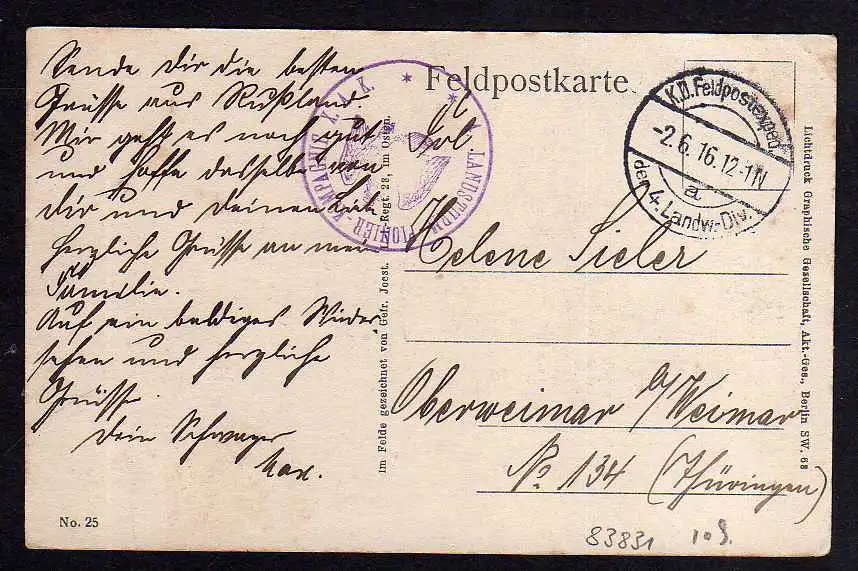 Sende Dir die besten
Grüsse aus Rußland.
Mir geht es noch gut
und hoffe dasselbe von
Dir und Deinen
herzliche Grüsse an
Familie.
Auf ein baldiges Wieder
sehen und herzliche
Grüsse
Dein Schwager
Max.
No. 25
Im Felde gezeichnet von Gefr. Joest. Regt. 28, im Osten.
LANDSTURM PIONIER - KOMPAGNIE X. A. K.
Feldpostkarte
K.D. Feldpostexped.
-2.6.16. 12-1N
a
der 4. Landw-Div.
Frl.
Helene Sieler
Oberweimar b/Weimar
No 134 (Thüringen)
Lichtdruck Graphische Gesellschaft, Akt.-Ges., Berlin SW. 68
83831